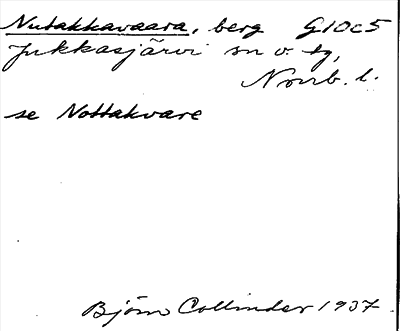 Nutakkavaara, berg G10c5
Jukkasjärvi sn o. tg,
Norrb. l.
se Nottakvare
Björn Collinder 1937.